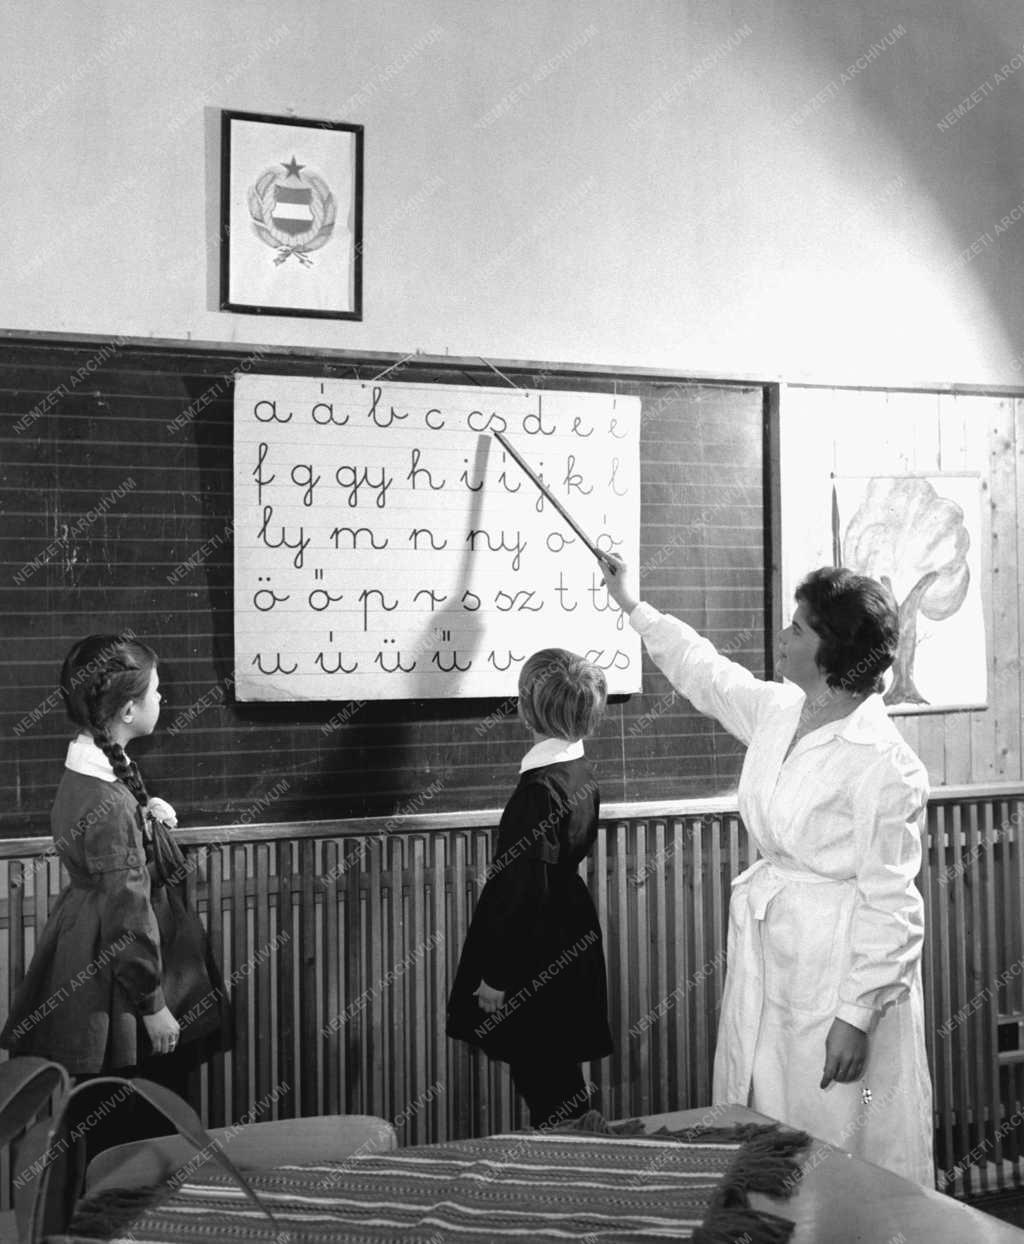 a á b c cs d e é
f g gy h i í j k l
ly m n ny o ó
ö ő p r s sz t ty
u ú ü ű v zs
NEMZETI ARCHÍVUM